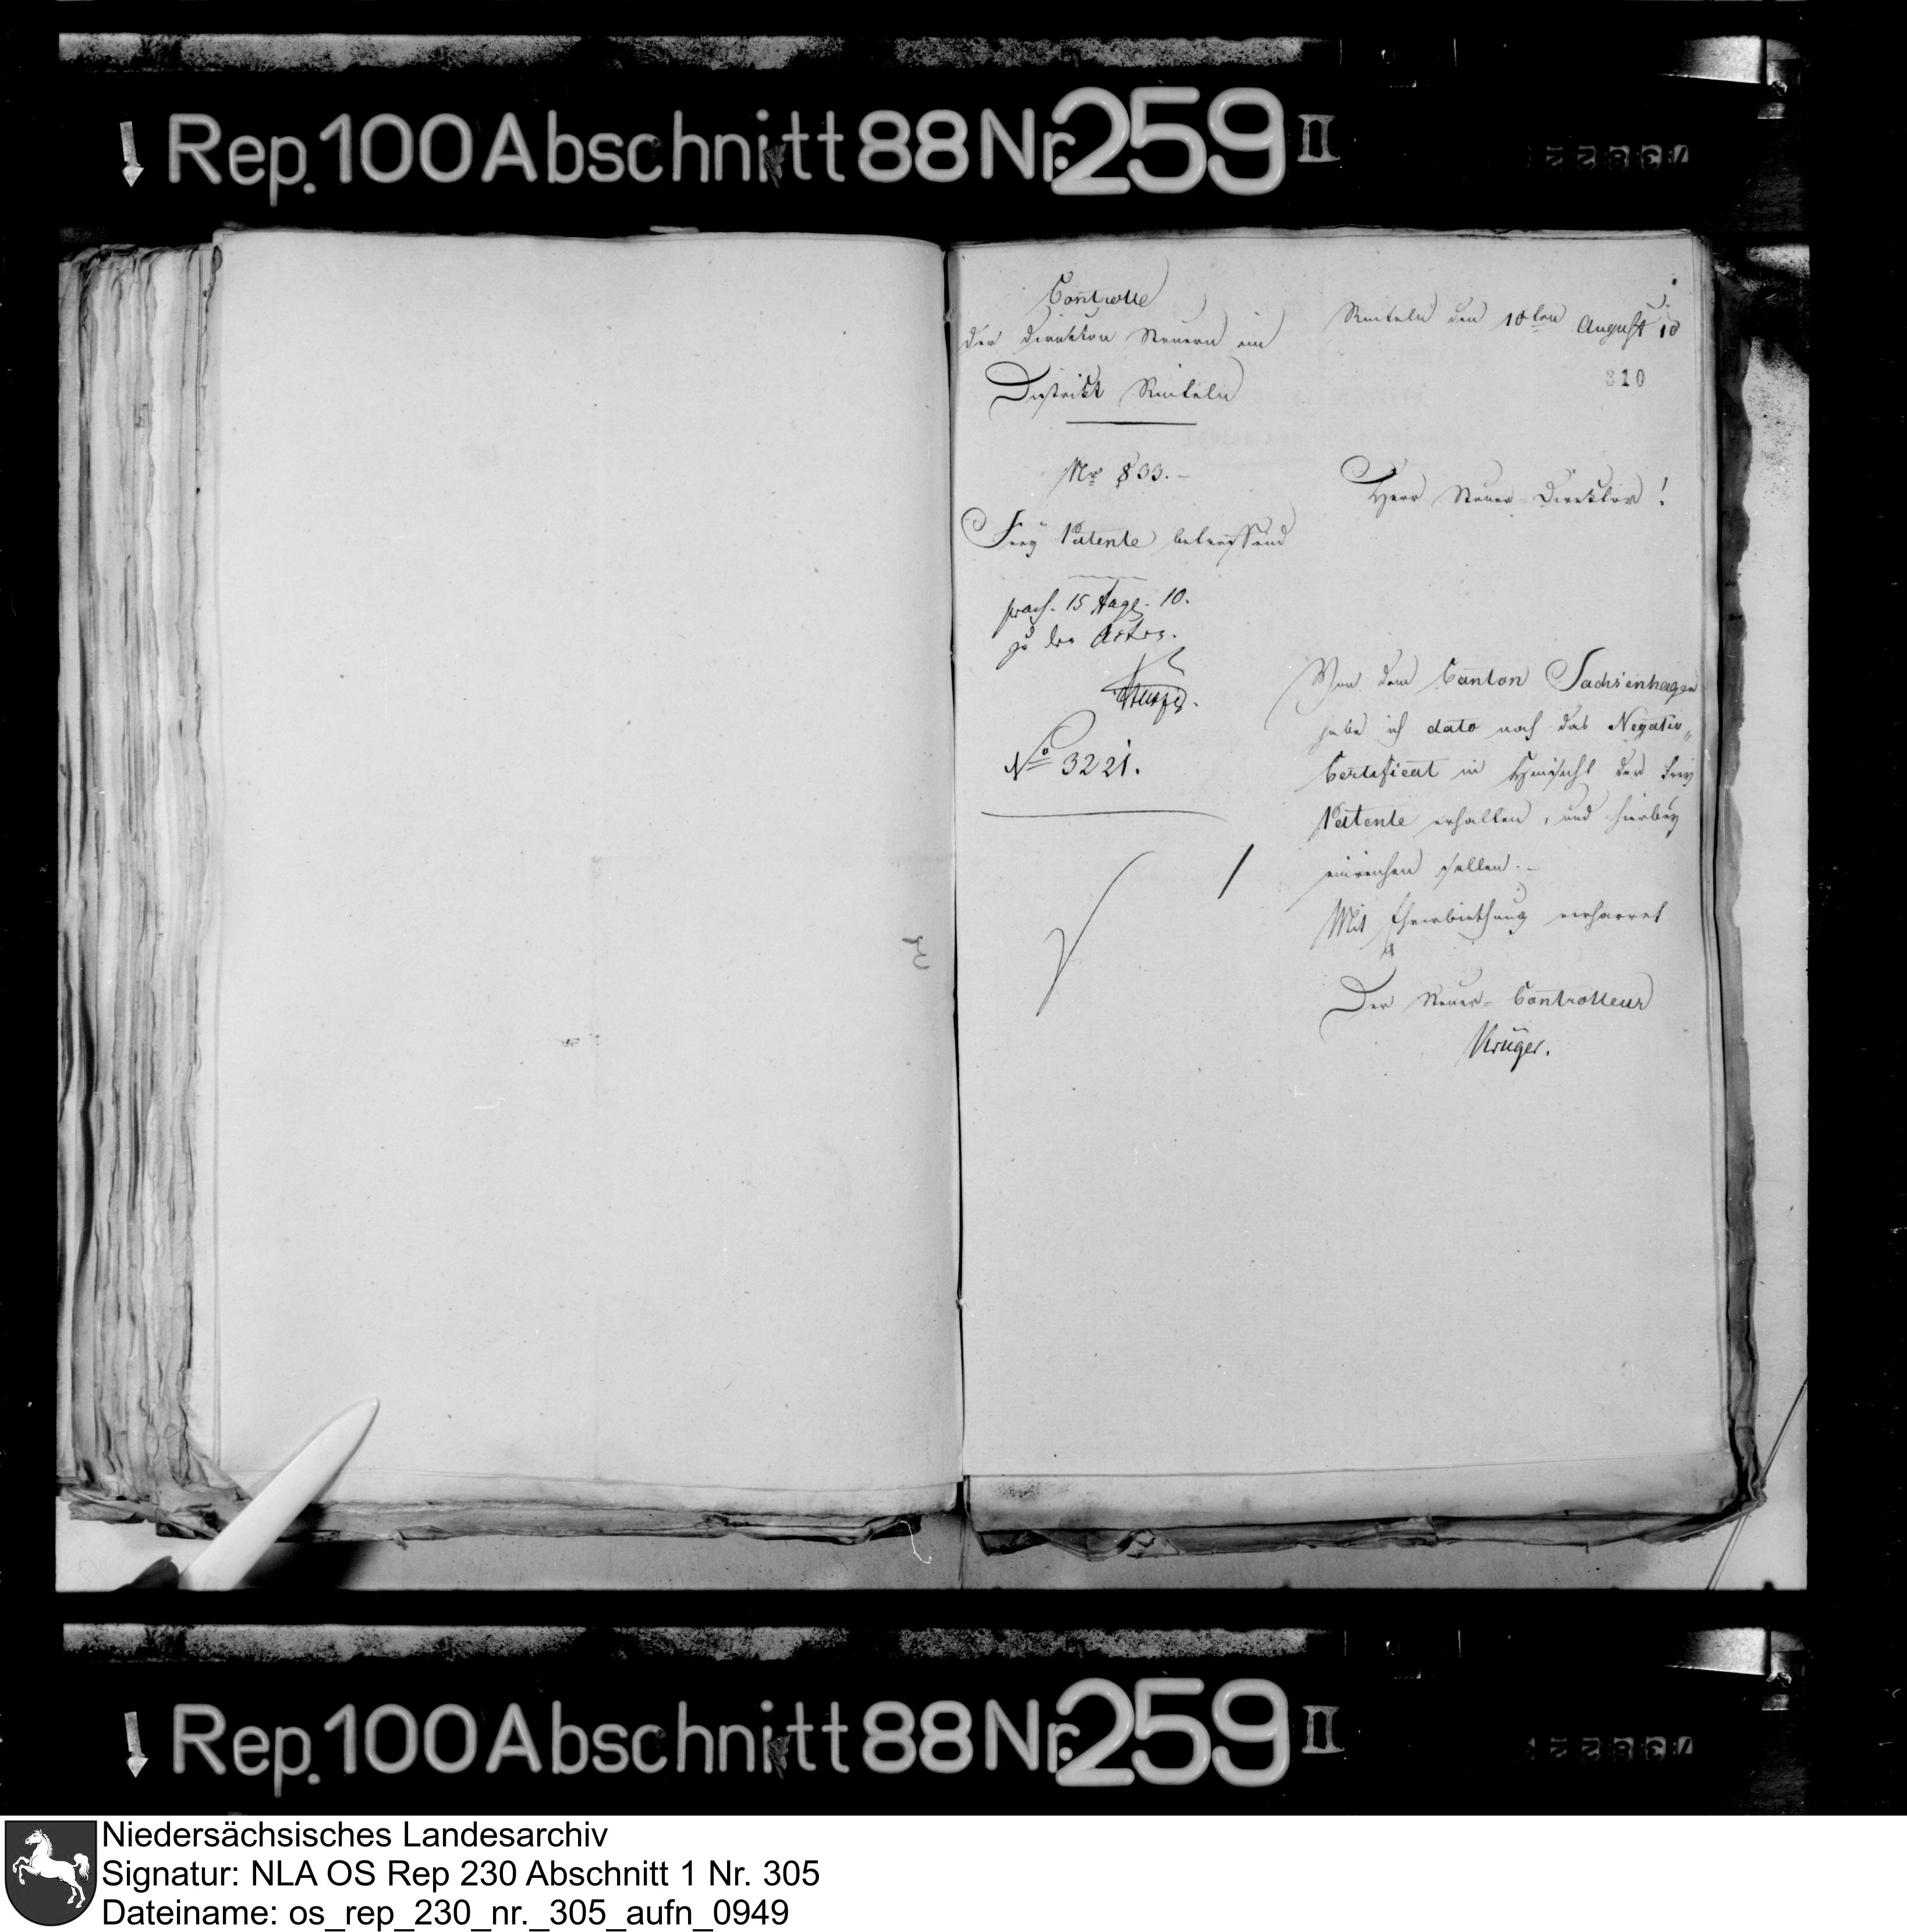 Rep. 100 Abschnitt 88 Nr. 259 II
Controlle
der direkten Steuern im
Distrikt Rinteln
Nro 833.-
Frey Patente betreffend
praes. 15 Aug. 10.
zu den Acten.
No 3221.
Rinteln den 10ten August 10
310
Herr Steuer-Direktor!
Von dem Canton Sachsenhagen
habe ich dato noch das Negativ„
Certificat in Hinsicht der Frey
Patente erhalten, und hierbey
einreichen sollen.-
Mit Ehrerbiethung verharret
Der Steuer-Controlleur
Krüger.
Rep. 100 Abschnitt 88 Nr. 259 II
Niedersächsisches Landesarchiv
Signatur: NLA OS Rep 230 Abschnitt 1 Nr. 305
Dateiname: os_rep_230_nr._305_aufn_0949